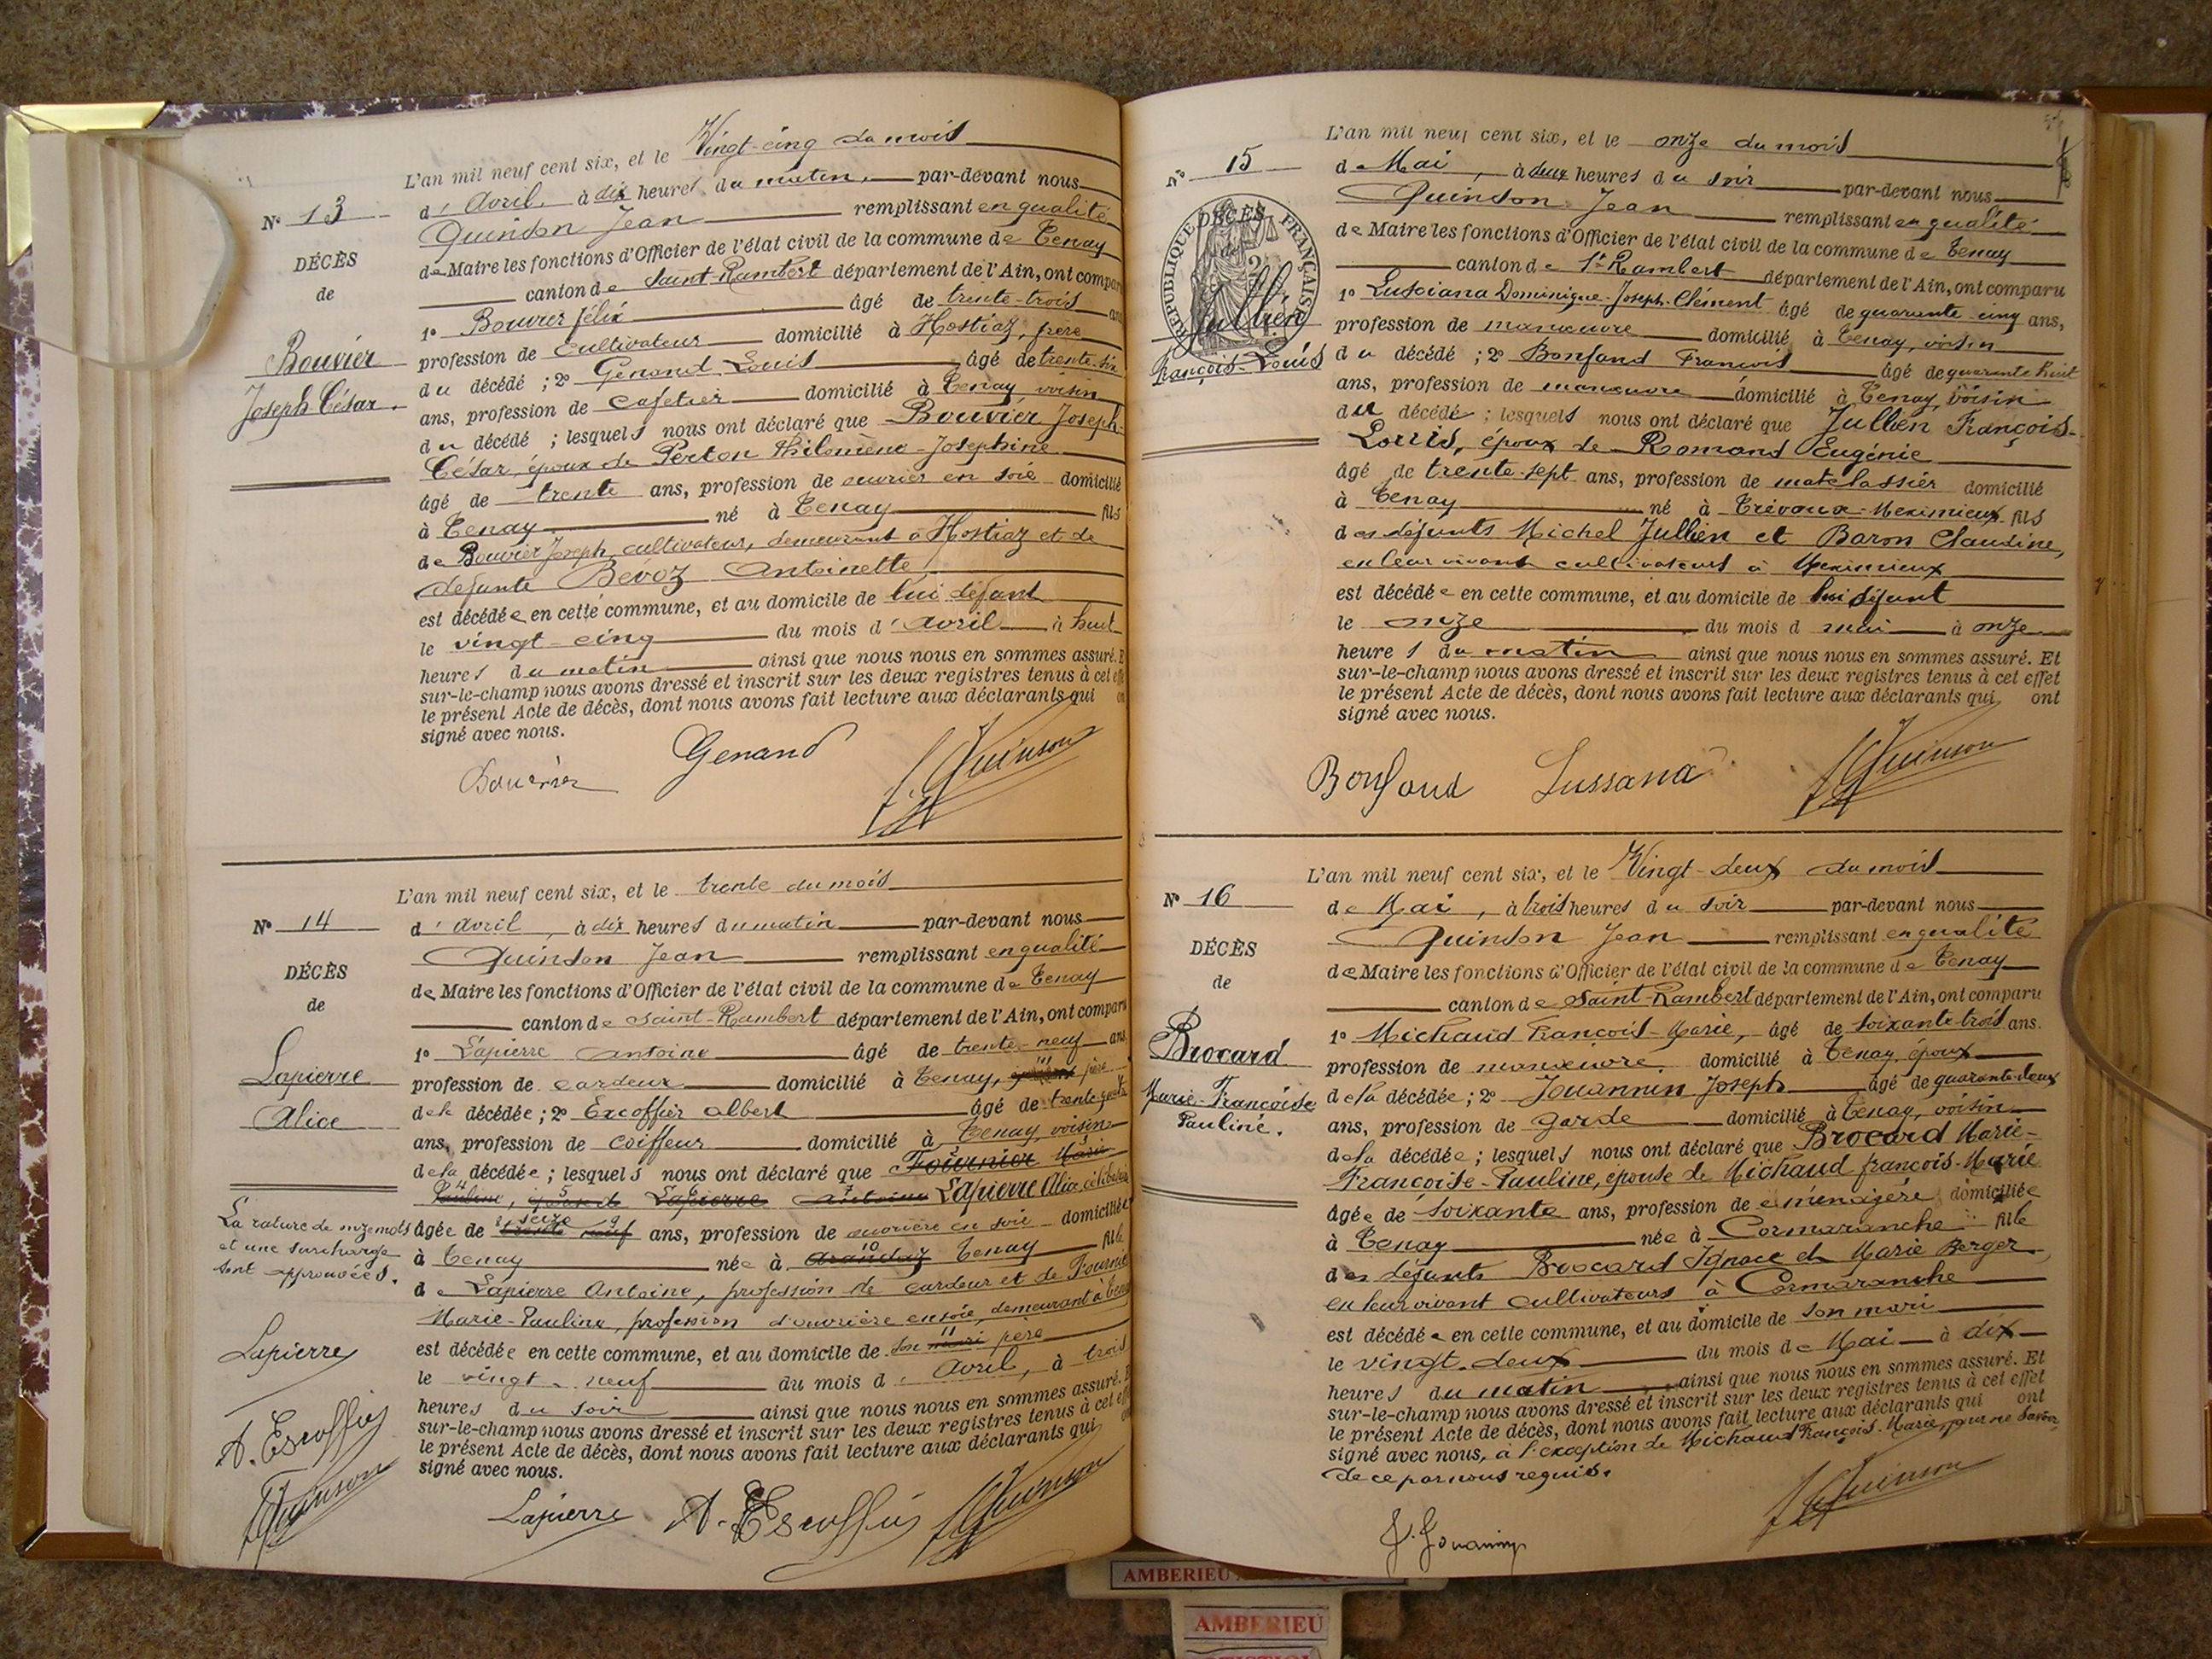 L'an mil neuf cent six, et le Vingt-cinq du mois
N° 13
d'Avril, à dix heures du matin, par-devant nous
Quinson Jean remplissant en qualité
de Maire les fonctions d'Officier de l'état civil de la commune de Tenay
canton de Saint-Rambert département de l'Ain, ont compar
DÉCÈS
de
Bouvier
Joseph-César.
1° Bouvier félix âgé de trente-trois ans
profession de cultivateur domicilié à Hostiaz, frère
du décédé ; 2° Genand Louis âgé de trente-six
ans, profession de Cafetier domicilié à Tenay voisin
du décédé ; lesquels nous ont déclaré que Bouvier Joseph-
César, époux de Perton Philomène-Josephine
âgé de trente ans, profession de ouvrier en soie domicilié
à Tenay né à Tenay fils
de Bouvier Joseph, cultivateur, demeurant à Hostiaz et de
défunte Bévoz Antoinette
est décédé en cette commune, et au domicile de lui défunt
le vingt-cinq du mois d'avril à huit
heures du matin ainsi que nous nous en sommes assuré. E
sur-le-champ nous avons dressé et inscrit sur les deux registres tenus à cet eff
le présent Acte de décès, dont nous avons fait lecture aux déclarants qui on
signé avec nous.
Bouvier Genand J. Quinson
L'an mil neuf cent six, et le trente du mois
N° 14
d'avril, à dix heures du matin par-devant nous
Quinson Jean remplissant en qualité
de Maire les fonctions d'Officier de l'état civil de la commune de Tenay
canton de Saint-Rambert département de l'Ain, ont compar
DÉCÈS
de
Lapierre
Alice
1° Lapierre Antoine âgé de trente-neuf ans
profession de cardeur domicilié à Tenay, père
de la décédée ; 2° Excoffier albert âgé de trente
ans, profession de coiffeur domicilié à Tenay, voisin
de la décédée ; lesquels nous ont déclaré que Fournier Marie
Pauline, épouse de Lapierre Antoine Lapierre Alice, célibataire
âgée de trente neuf seize ans, profession de ouvrière en soie domiciliée
à Tenay née à Arandaz Tenay fille
de Lapierre Antoine, profession de cardeur et de Fournie
Marie-Pauline, profession d'ouvrière en soie, demeurant à Tena
est décédée en cette commune, et au domicile de son mari père
le vingt-neuf du mois d'avril, à trois
heures du soir ainsi que nous nous en sommes assuré. E
sur-le-champ nous avons dressé et inscrit sur les deux registres tenus à cet eff
le présent Acte de décès, dont nous avons fait lecture aux déclarants qui on
signé avec nous.
La rature de onze mots
et une surcharge
sont approuvées.
Lapierre
A. Escoffier
J Quinson
Lapierre A. Escoffier J Quinson
L'an mil neuf cent six, et le onze du mois
N° 15
de Mai, à deux heures du soir par-devant nous
Quinson Jean remplissant en qualité
de Maire les fonctions d'Officier de l'état civil de la commune de Tenay
canton de St-Rambert département de l'Ain, ont comparu
RÉPUBLIQUE FRANÇAISE
DÉCÈS
de
Jullien
François-Louis
1° Lussiana Dominique-Joseph-Clément âgé de quarante-cinq ans,
profession de manœuvre domicilié à Tenay, voisin
du décédé ; 2° Bonfand François âgé de quarante huit
ans, profession de manœuvre domicilié à Tenay, voisin
du décédé ; lesquels nous ont déclaré que Jullien François-
Louis, époux de Romand Eugénie
âgé de trente-sept ans, profession de matelassier domicilié
à Tenay né à Trévoux-Meximieux fils
des défunts Michel Jullien et Baron Claudine,
en leur vivant cultivateurs à Meximieux
est décédé en cette commune, et au domicile de lui défunt
le onze du mois d mai à onze
heures du matin ainsi que nous nous en sommes assuré. Et
sur-le-champ nous avons dressé et inscrit sur les deux registres tenus à cet effet
le présent Acte de décès, dont nous avons fait lecture aux déclarants qui ont
signé avec nous.
Bonfand Lussana J Quinson
L'an mil neuf cent six, et le Vingt-deux du mois
N° 16
de Mai, à trois heures du soir par-devant nous
Quinson Jean remplissant en qualité
de Maire les fonctions d'Officier de l'état civil de la commune de Tenay
canton de Saint-Rambert département de l'Ain, ont comparu
DÉCÈS
de
Brocard
Marie-Françoise
Pauline.
1° Michaud François-Marie, âgé de soixante-trois ans.
profession de manœuvre, domicilié à Tenay, époux
de la décédée ; 2° Jouannin Joseph âgé de quarante-deux
ans, profession de garde domicilié à Tenay, voisin
de la décédée ; lesquels nous ont déclaré que Brocard Marie-
Françoise-Pauline, épouse de Michaud françois-Marie
âgée de soixante ans, profession de ménagère domiciliée
à Tenay née à Cormaranche fille
des défunts Broocard Ignace et Marie Berger,
en leur vivant cultivateurs à Cormaranche
est décédée en cette commune, et au domicile de son mari
le vingt-deux du mois de Mai à dix
heures du matin ainsi que nous nous en sommes assuré. Et
sur-le-champ nous avons dressé et inscrit sur les deux registres tenus à cet effet
le présent Acte de décès, dont nous avons fait lecture aux déclarants qui ont
signé avec nous, à l'exception de Michaud François-Marie, pour ne savoir
de ce par nous requis.
J. Jouannin J Quinson
AMBERIEU
AMBERIEU